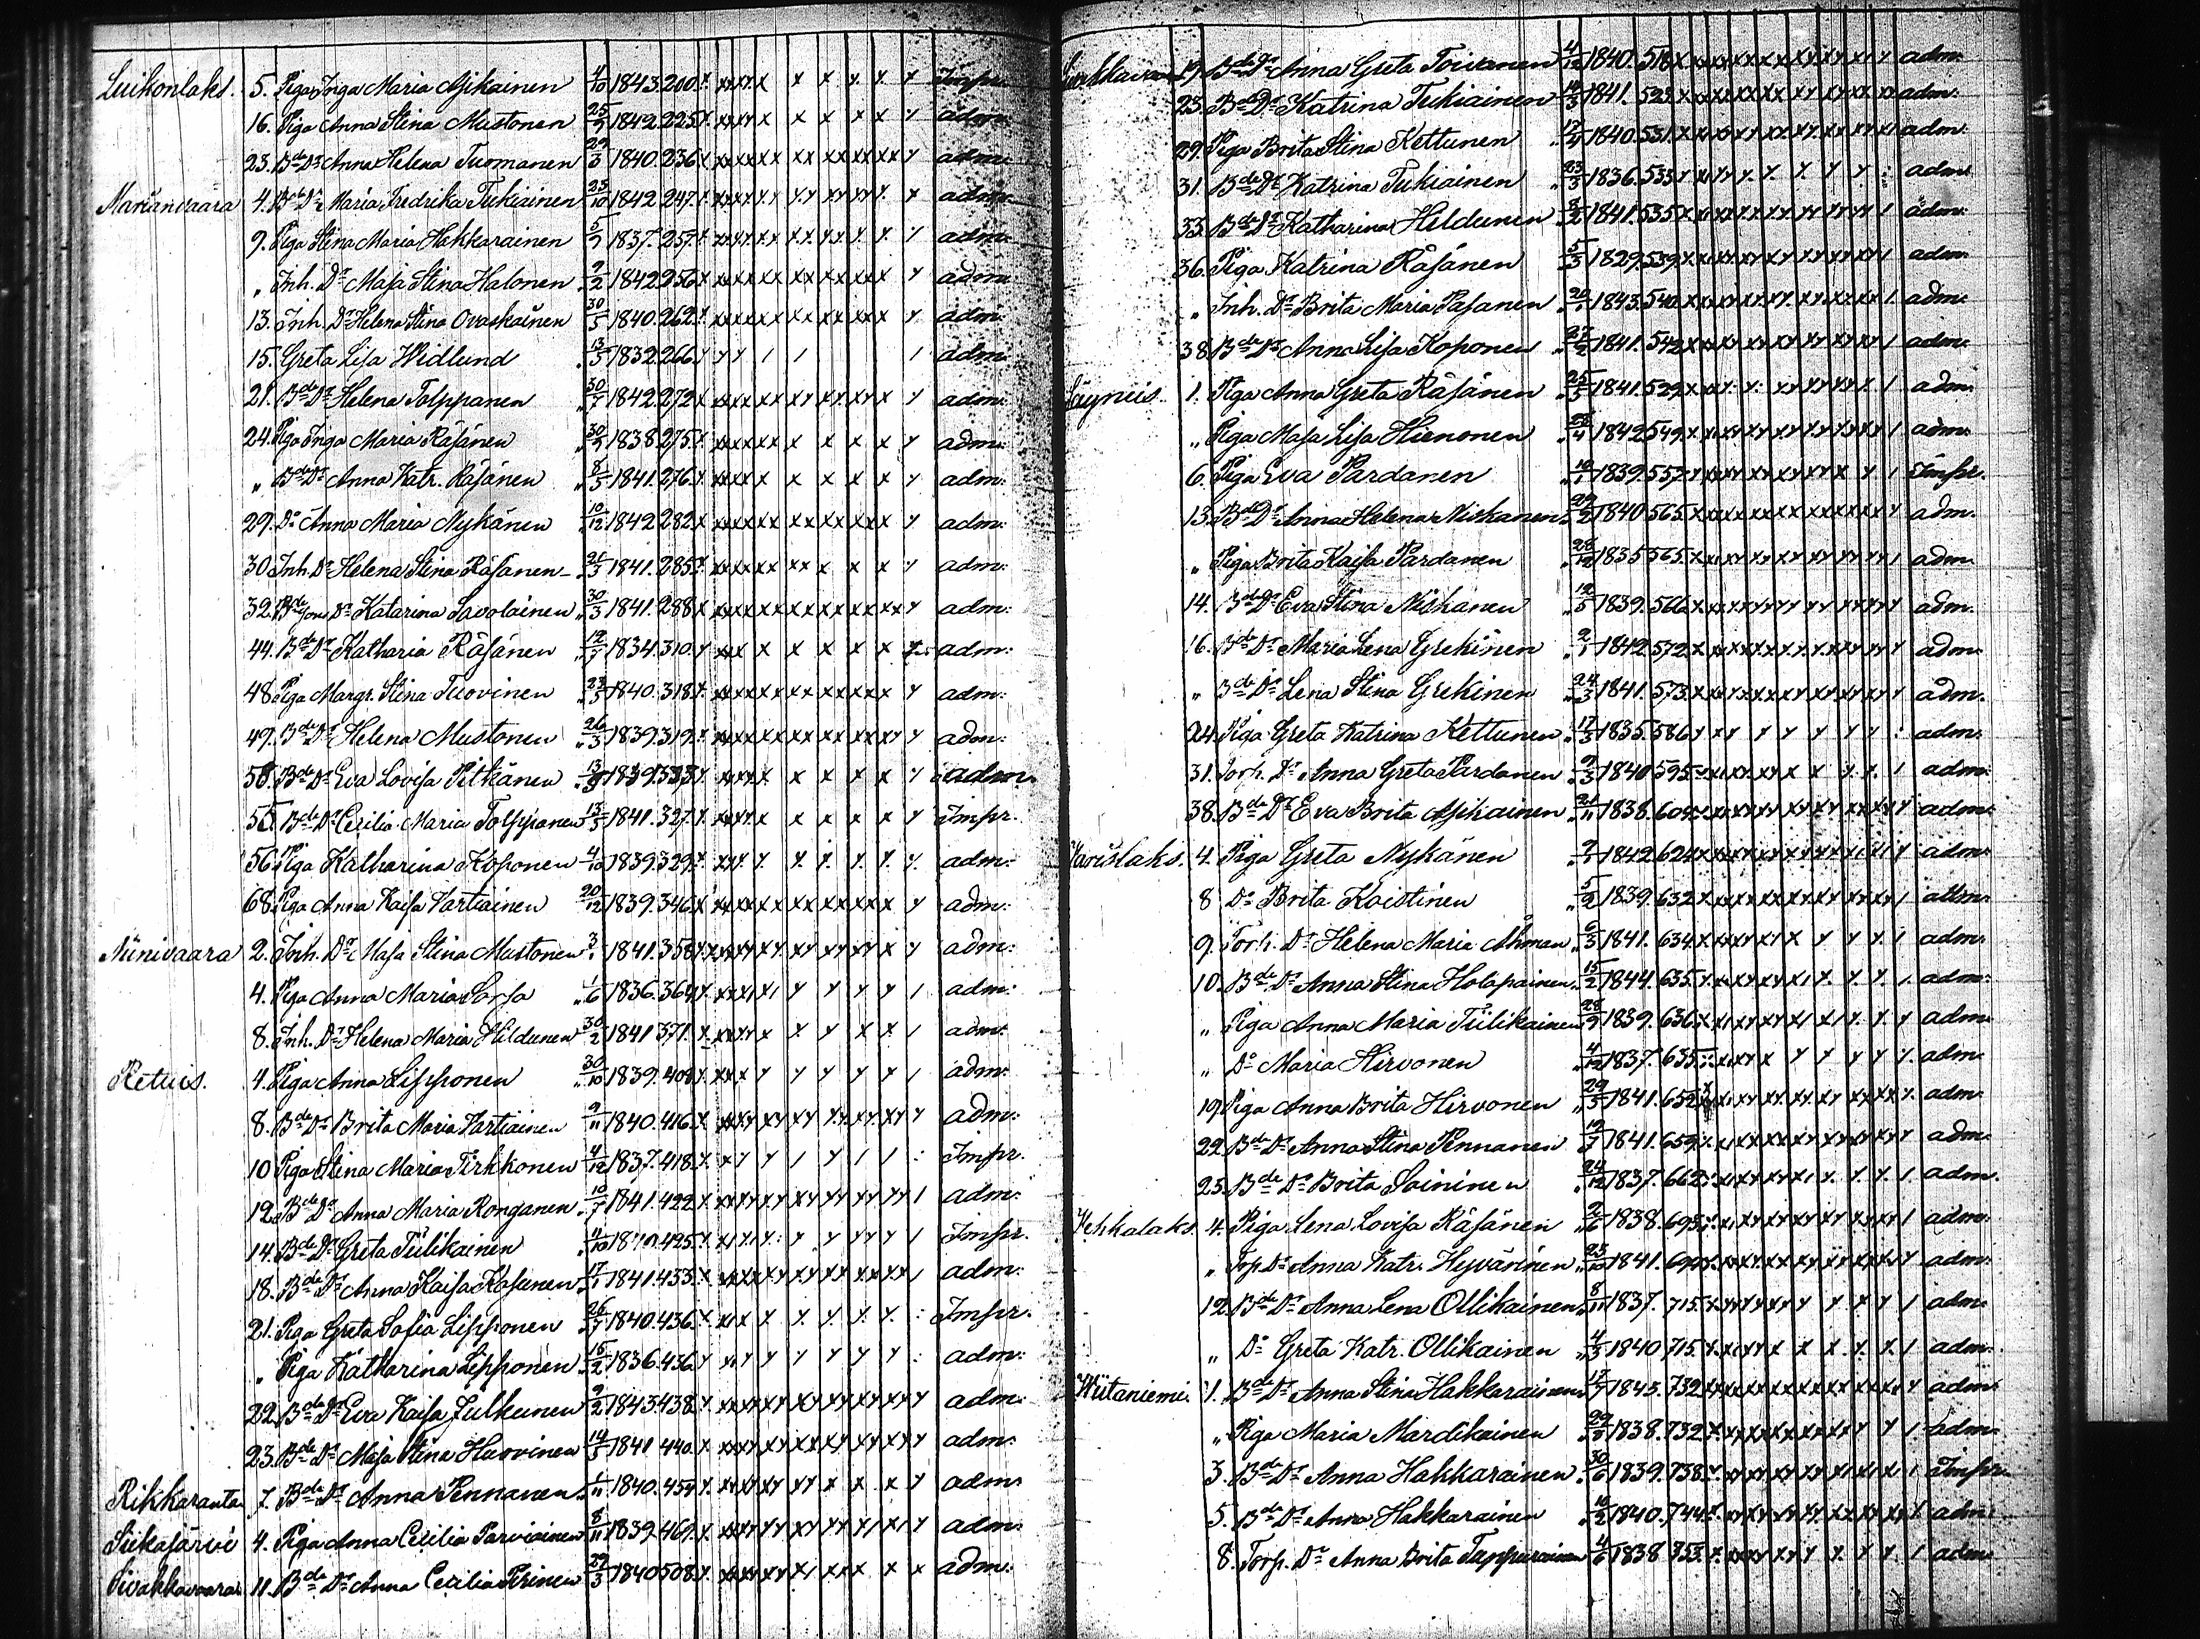 Luikonlaks. 5. Piga Inga Maria Asikainen 4/10 1843. 200. Impr.
16. Piga Anna Stina Mustonen 25/9 1842. 225. adm.
23. Bde Dr Anna Helena Tuomanen 29/3 1840. 236. adm.
Mariänvaara 4. Bde Dr Maria Fredrika Tukiainen 23/10 1842. 247. adm.
9. Piga Stina Maria Hakkarainen 5/9 1837. 257. adm.
" Inh. Dr Maja Stina Halonen 9/2 1842. 256. adm.
13. Inh. Dr Helena Stina Ovaskainen 30/5 1840. 262. adm.
15. Greta Lisa Widlund 13/5 1832. 266. adm.
21. Bde Dr Helena Tolppanen 30/7 1842. 272. adm.
24. Piga Inga Maria Räsänen 30/9 1838. 275. adm.
" Bde Dr Anna Katr. Räsänen 8/5 1841. 276. adm.
29. Do Anna Maria Nykänen 10/12 1842. 282. adm.
30. Inh. Dr Helena Stina Räsänen 1841. 285. adm.
32. Bde Sons Dr Katarina Savolainen 30/3 1841. 288. adm.
44. Bde Dr Katharia Räsänen 12/7 1834. 310. adm.
48. Piga Margr. Stina Tuovinen 23/3 1840. 318. adm.
49. Bde Dr Helena Mustonen 26/3 1839. 319. adm.
Bde Dr Eva Lovisa Pitkänen 1839. 333. adm.
55. Bde Dr Cecilia Maria Tolppanen 13/5 1841. 327. Impr.
56. Piga Katharina Koponen 4/10 1839. 329. adm.
68. Piga Anna Kaisa Vartiainen 20/12 1839. 346. adm.
Niinivaara 2. Inh. Dr Maja Stina Mustonen 1841. 358. adm.
4. Piga Anna Maria Sorsa 1/6 1836. 364. adm.
8. Inh. Dr Helena Maria Hildunen 30/2 1841. 371. adm.
Retuis. 4. Piga Anna Lipponen 30/10 1839. 408. adm.
8. Bde Dr Brita Maria Vartiainen 9/11 1840. 416. adm.
10. Piga Stina Maria Pirkkonen 4/12 1837. 418. Impr.
12. Bde Dr Anna Maria Ronganen 10/7 1841. 422. adm.
14. Bde Dr Greta Tiilikainen 4/10 425. Impr.
18. Bde Dr Anna Kaisa Kosunen 17/1 1841. 433. adm.
21. Piga Greta Sofia Lipponen 26/7 1840. 436. Impr.
" Piga Katharina Lipponen 15/2 1836. 436. adm.
22. Bde Dr Eva Kaisa Julkunen 9/2 1843. 438. adm.
23. Bde Dr Maja Stina Huovinen 14/5 1841. 440. adm.
Rikkaranta 7. Bde Dr Anna Pennanen 1/11 1840. 454. adm.
Siikajärvi 4. Piga Anna Cecilia Parviainen 8/11 1839. 461. adm.
Sivakkavaara 11. Bde Dr Anna Cecilia Pirinen 29/3 1840. 508. adm.
19. Bde Dr Anna Greta Toivanen 4/12 1840. 518. adm.
23. Bde Dr Katrina Tukiainen 1841. 523. adm.
29. Piga Brita Stina Kettunen 1840. 531. adm.
31. Bde Dr Katrina Tukiainen 23/3 1836. 533. adm.
33. Bde Dr Katharina Hildunen 8/2 1841. 535. adm.
36. Piga Katrina Räsänen 5/3 1829. 539. adm.
" Inh. Dr Brita Maria Pasanen 20/1 1843. 540. adm.
38. Bde Dr Anna Lisa Koponen 27/2 1841. 542. adm.
Säyneis. 1. Piga Anna Greta Räsänen 25/5 1841. 529. adm.
" Piga Maja Lisa Hirnonen 1842. 549. adm.
6. Piga Eva Pardanen 10/1 1839. 557. Impr.
13. Bde Dr Anna Helena Niskanen 29/2 1840. 565. adm.
" Piga Brita Kaisa Pardanen 28/12 1835. 565. adm.
14. Bde Dr Eva Stina Niskanen 12/5 1839. 566. adm.
16. Bde Dr Maria Lena Grekinen 2/1 1842. 572. adm.
" Bde Dr Lena Stina Grekinen 24/3 1841. 573. adm.
24. Piga Greta Katrina Kettunen 17/3 1835. 586. adm.
31. Torp. Dr Anna Greta Pardanen 9/3 1840. 595. adm.
38. Bde Dr Eva Brita Asikainen 21/11 1838. 609. adm.
4. Piga Greta Nykänen 1842. 624. adm.
8. Do Brita Koistinen 5/2 1839. 632. adm.
9. Torp. Dr Helena Maria Åhman 6/3 1841. 634. adm.
10. Bde Dr Anna Stina Holopainen 15/2 1844. 635. adm.
" Piga Anna Maria Tiilikainen 28/9 1839. 636. adm.
" Do Maria Hirvonen 4/12 1837. 635. adm.
19. Piga Anna Brita Hirvonen 29/5 1841. 652. adm.
22. Bde Dr Anna Stina Pennanen 1841. 659. adm.
23. Bde Dr Brita Soininen 24/12 1837. 662. adm.
Vehkalaks. 4. Piga Lena Lovisa Räsänen 2/6 1838. 693. adm.
" Torp Dr Anna Katr. Hyvärinen 23/10 1841. adm.
12. Bde Dr Anna Lena Ollikainen 8/11 1837. 715. adm.
" Do Greta Katr. Ollikainen 4/5 1840. 715. adm.
Wiitaniemi. 1. Bde Dr Anna Stina Hakkarainen 1843. 732. adm.
" Piga Maria Mardikainen 1838. 732. adm.
3. Bde Dr Anna Hakkarainen 30/6 1839. 738. Impr.
5. Bde Dr Anna Hakkarainen 10/2 1840. 744. adm.
8. Torp. Dr Anna Brita Tappurainen 4/6 1838. 753. adm.